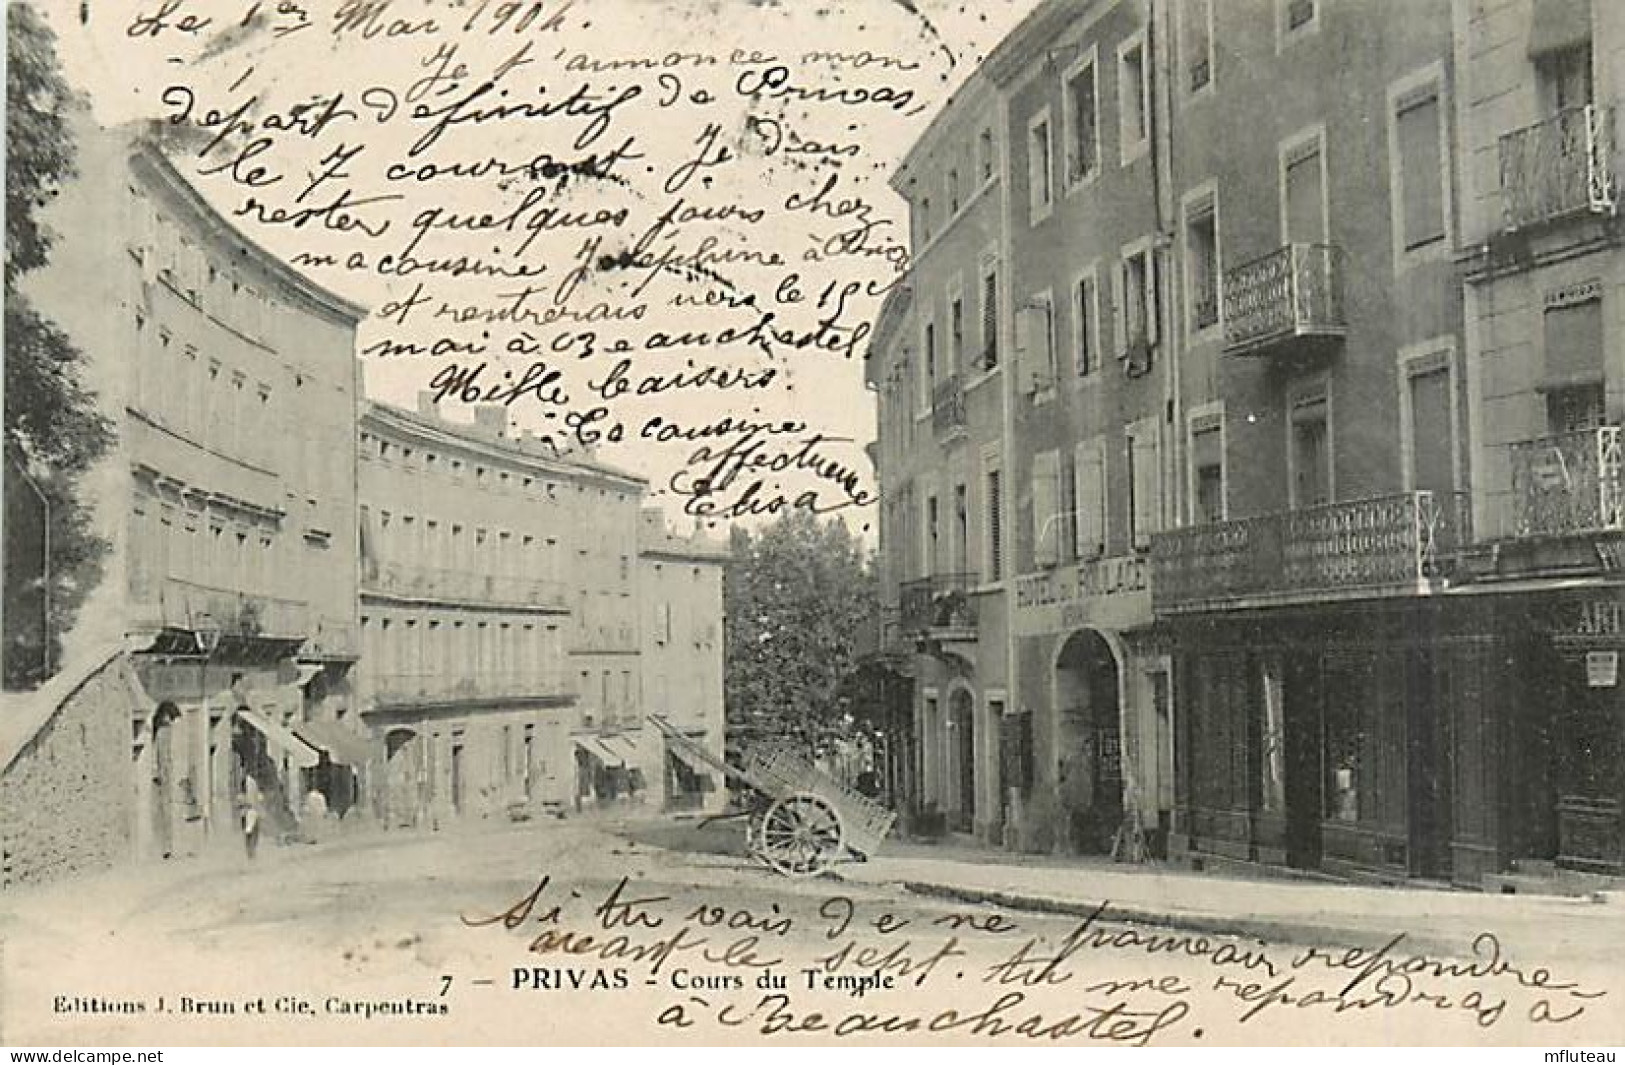 Le 1er Mai 1904.
Je t'annonce mon
départ définitif de Privas,
le 7 courant. Je dois
rester quelques jours chez
ma cousine Joséphine à
et rentrerais vers le 15
mai à Beauchastel
Mille baisers.
Ta cousine
affectueuse
Elisa
HOTEL DU ROULAGE
ART
Si tu vais de ne pouvoir repondre
avant le sept. tu me repondras à
à Beauchastel.
7 - PRIVAS - Cours du Temple
Editions J. Brun et Cie, Carpentras
delcampe.net
mfluteau